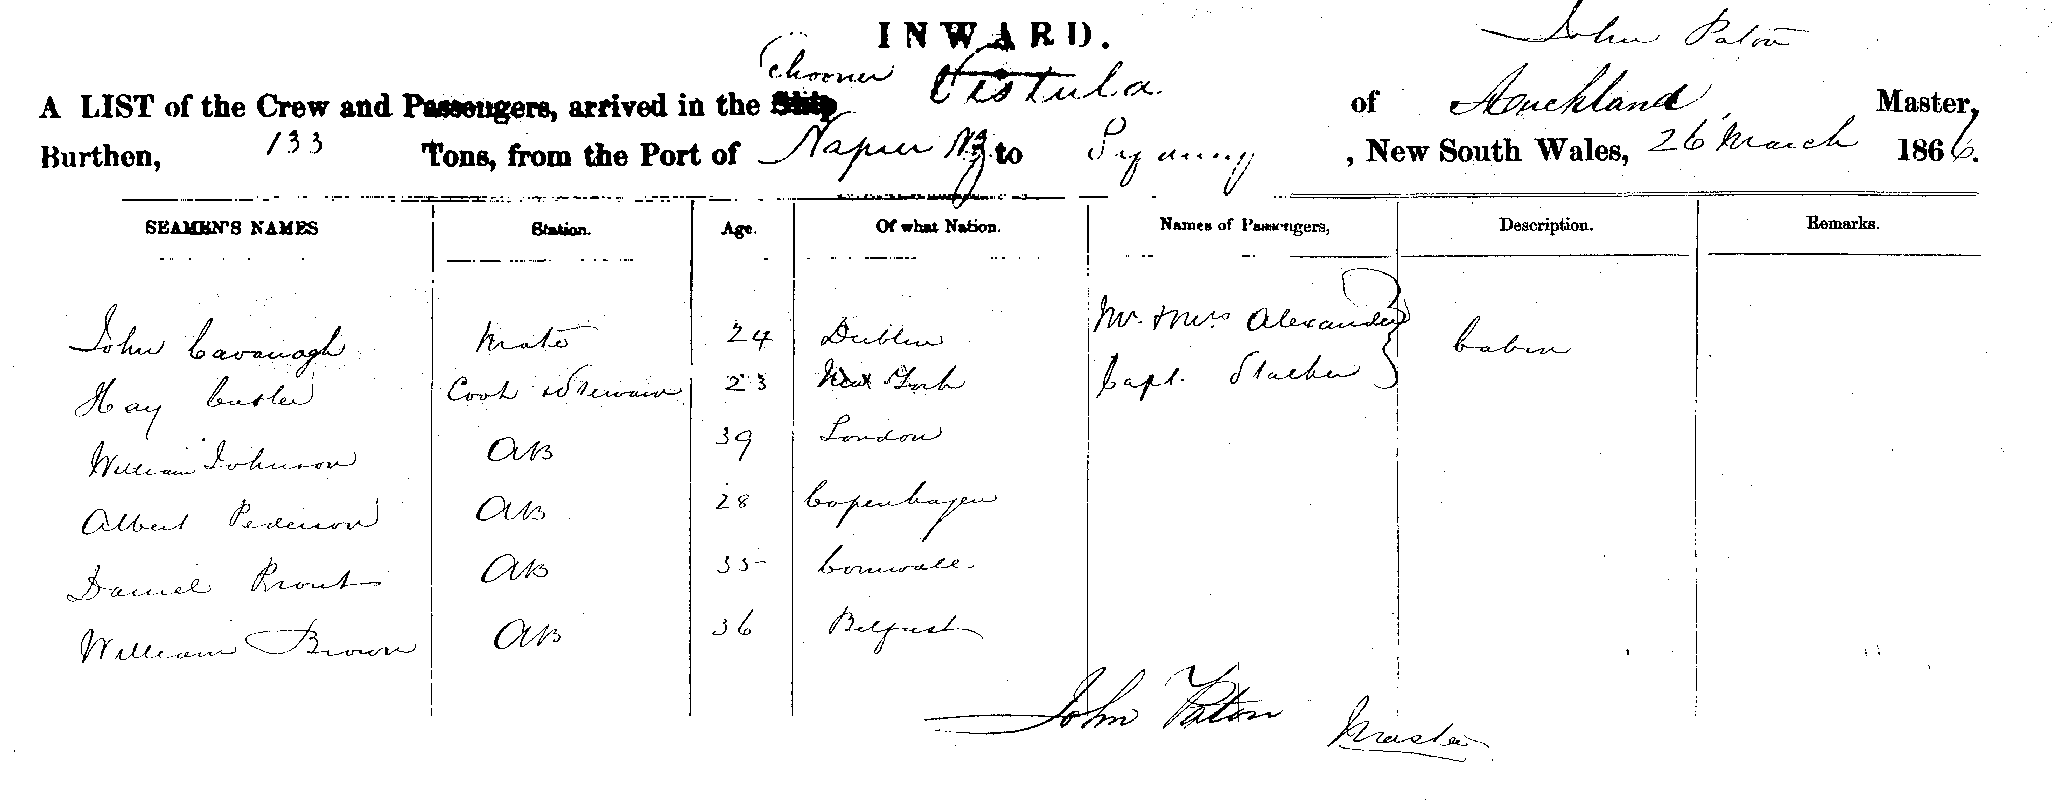 INWARD.
John Paton
A LIST of the Crew and Passengers, arrived in the Ship Schooner Vistula of Auckland Master,
Burthen, 133 Tons, from the Port of Napier NZ to Sydney, New South Wales, 26 March 1866.
SEAMEN'S NAMES Station. Age. Of what Nation. Names of Passengers, Description. Remarks.
John Cavanagh Mate 24 Dublin Mr. & Mrs Alexander Cabin
Hay Cook & Steward 23 New York Capt.
William Johnson AB 39 London
Albert Pederson AB 28 Copenhagen
Daniel Prout AB 35 Cornwall
William Brown AB 36 Belfast
John Paton Master